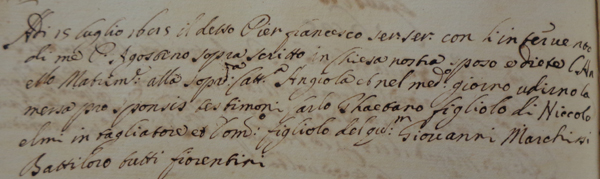 Adi 15 luglio 1685 il detto Pier francesco ser: ser: con l'intervento
di me P. Agostino sopra scritto in chiesa nostra sposò e diete l'An
ello Matrim: alla sopr:ta Catt:a Angiola et nel med:o giorno udirno la
messa pro sponsis testimoni Carlo Gaetano figliolo di Niccolo
elmi intagliatore et Tom:o figliolo del qu:m Giovanni Marchissi
Battiloro tutti fiorentini